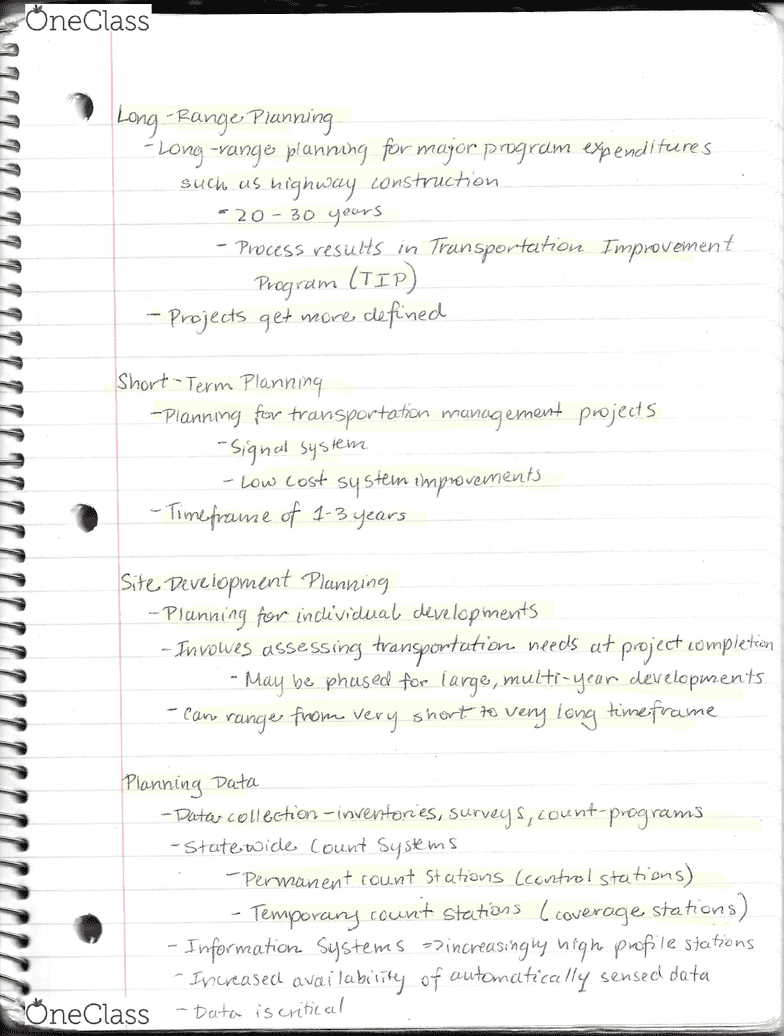 OneClass
Long-Range Planning
- Long-range planning for major program expenditures
such as highway construction
- 20-30 years
- Process results in Transportation Improvement
Program (TIP)
- Projects get more defined
Short-Term Planning
- Planning for transportation management projects
- Signal system
- Low cost system improvements
- Timeframe of 1-3 years
Site Development Planning
- Planning for individual developments
- Involves assessing transportation needs at project completion
- May be phased for large, multi-year developments
- Can range from very short to very long timeframe
Planning Data
- Data collection - inventories, surveys, count-programs
- Statewide Count Systems
- Permanent count stations (control stations)
- Temporary count stations (coverage stations)
- Information Systems => increasingly high profile stations
- Increased availability of automatically sensed data
- Data is critical
OneClass